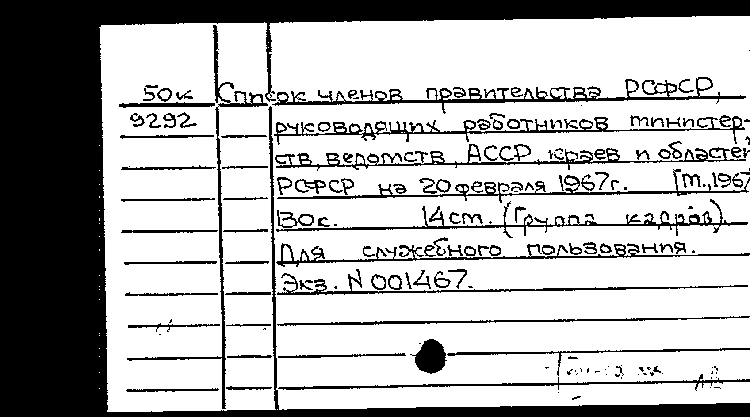 50к Список членов правительства РСФСР,
9292 руководящих работников министер-
ств, ведомств, АССР, краев и областей
РСФСР на 20 февраля 1967г. [М.,1967
130с. 14см. (Группа кадров).
Для служебного пользования.
Экз. N 001467.